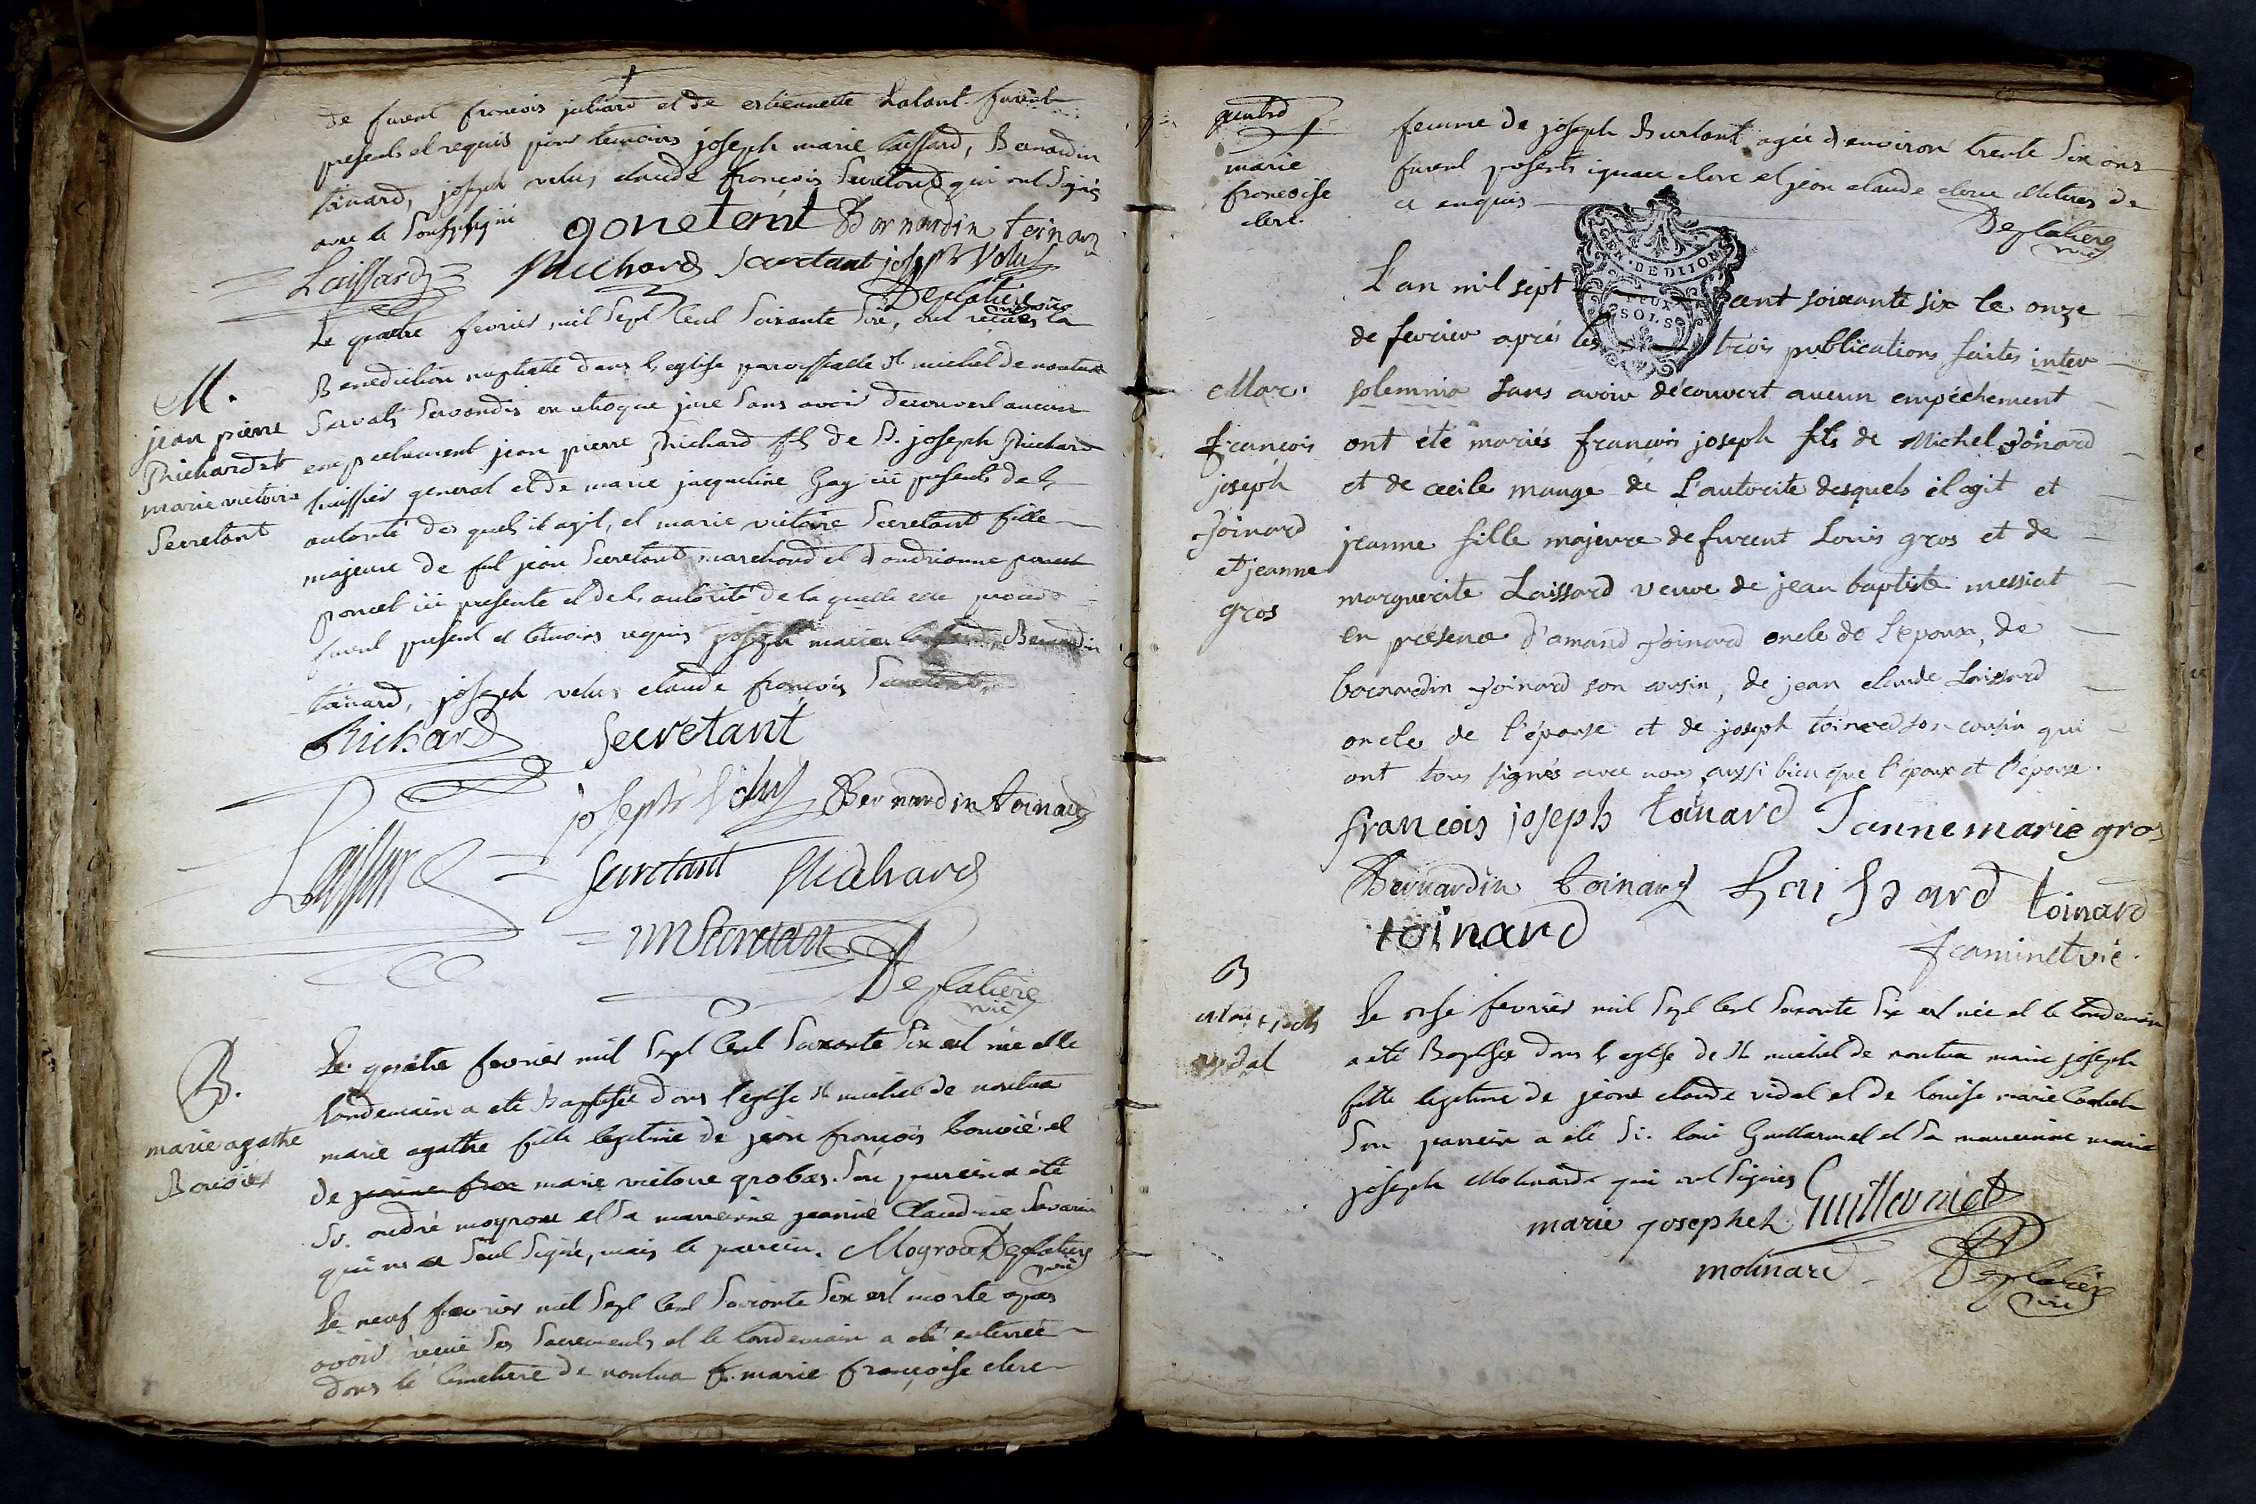 de furent francois juliard et de estiennette Lalant. furent
presents et requis pour temoins joseph marie laissard, Bernardin
tainard, joseph velus claude françois Secretant qui ont signés
avec le soussigné
gonetent Bernardin toinard
Laissard Richard Secretant joseph Velus
Deglatiere vic
Le quatre fevrier mil sept cent soixante six, ont recües la
Benediction nuptialle dans l'eglise paroissialle st michel de nantua
M.
jean pierre
Richard et
marie victoire
Secretant
Servatis Servandis en utroque jure sans avoir decouvert aucun
empechement jean pierre Richard fils de S. joseph Richard
huissier general et de marie jacqueline Gay ici presents de l'
autorité des quels il agit, et marie victoire Secretant fille
majeure de fut jean Secretant marchand et d'andrianne
poncet ici presente et de l'autorité de la quelle elle procede
furent present et temoins requis joseph marie Laissard, Bernardin
tainard, joseph velus claude françois Secretant
Richard Secretant
joseph Velus Bernardin toinard
Laissard Secretant Richard
mv Secretan
Deglatiere
vic
B.
marie agathe
Bouvier
Le quatre fevrier mil sept cent soixante six est née et le
landemain a eté Baptisée dans l'eglise st michel de nantua
marie agathe fille legitime de jean françois bouvié et
de marie victoire grobas. Son parrein a eté
Sr. andré moyroux et sa marreinne jeanne Claudine Savarin
qui n'a seul signé, mais le parrein. Moyroux Deglatiere
vic
Le neuf fevrier mil sept cent soixante six est morte apres
avoir reçue ses sacrements et le landemain a eté enterrée
dans le cimetiere de nantua marie françoise clerc
marie
françoise
clerc.
femme de joseph Burlant agée d'environ trente six ans
furent presents ignace clerc et jean claude clerc
a enquis
Deglatiere
vic
GEN. DE DIJON
DEUX
SOLS
L'an mil sept cent soixante six le onze
de fevrier aprés les trois publications faites inter
Mar.
françois
joseph
toinard
et jeanne
gros
solemnia sans avoir découvert aucun empêchement
ont été mariés françois joseph fils de Michel toinard
et de cecile mange de L'autorite desquels il agit et
jeanne fille majeure de furent Louis gros et de
marguerite Laissard veuve de jean baptiste messiat
en présence d'amand toinard oncle de l'epoux, de
bernardin toinard son cousin, de jean claude Laissard
oncle de l'épouse et de joseph toinard son cousin qui
ont tous signés avec nous aussi bien que l'époux et l'épouse.
françois joseph tainard Jannemarie gros
Bernardin toinard Laissard toinard
toinard
Jcaminet vic.
B
vidal
Le onse fevrier mil sept cent soixante six est née et le landemain
a eté Baptisée dans l'eglise de st michel de nantua marie joseph
fille legitime de jean claude vidal et de louise marie
Son parrein a eté Sr. loui Guillermet et sa marreinne marie
joseph Molinard qui ont signés
marie josephet Guillermet
molinard Deglatiere
vic